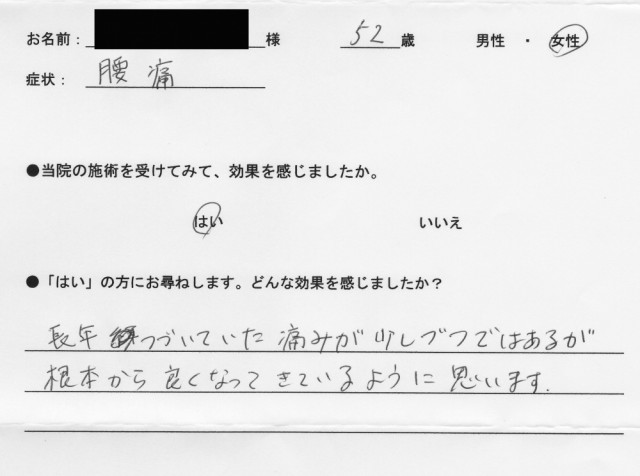 お名前： 様 52 歳 男性 ・ 女性
症状： 腰痛
●当院の施術を受けてみて、効果を感じましたか。
はい いいえ
●「はい」の方にお尋ねします。どんな効果を感じましたか？
長年 つづいていた 痛みが 少しづつではあるが
根本から 良くなって きているように 思います.